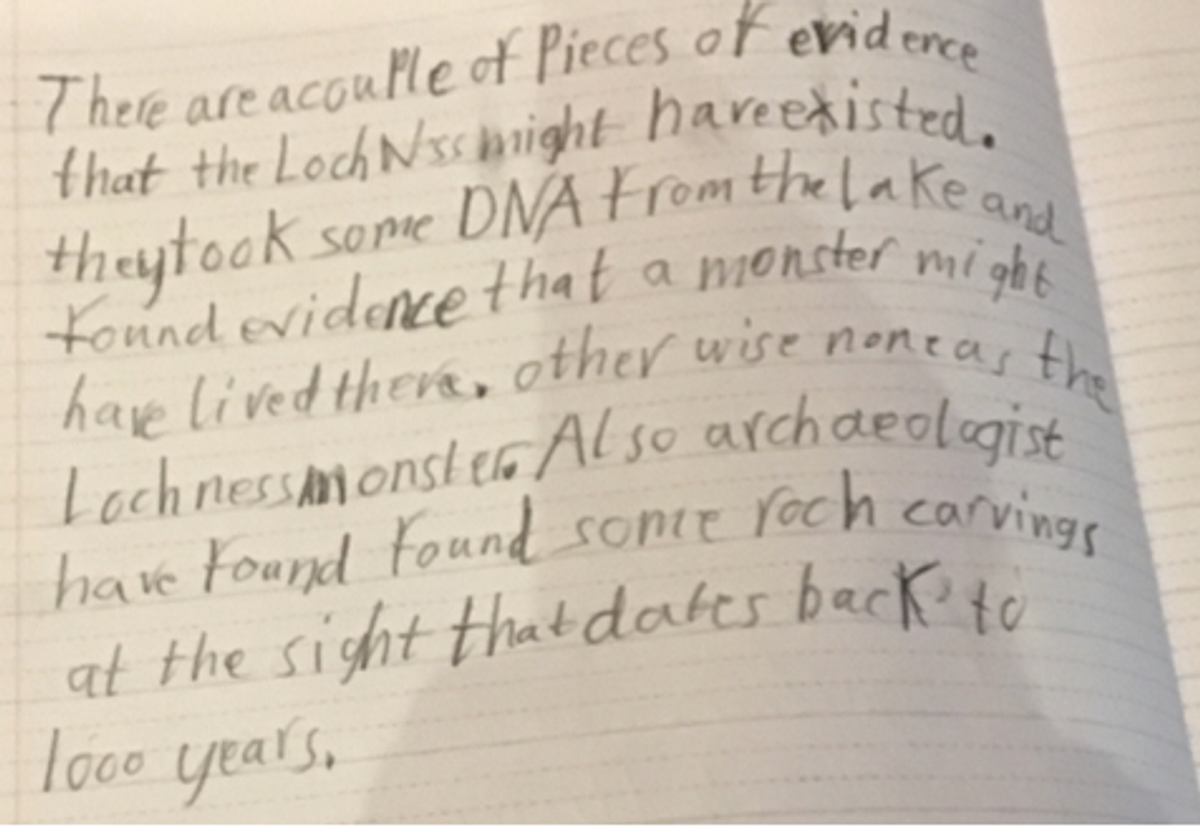 There are a couple of Pieces of evidence
that the Loch Nss might have existed.
they took some DNA from the lake and
found evidence that a monster might
have lived there. other wise none as the
Loch ness monster. Also archaeologist
have found found some roch carvings
at the sight that dates back to
1000 years.